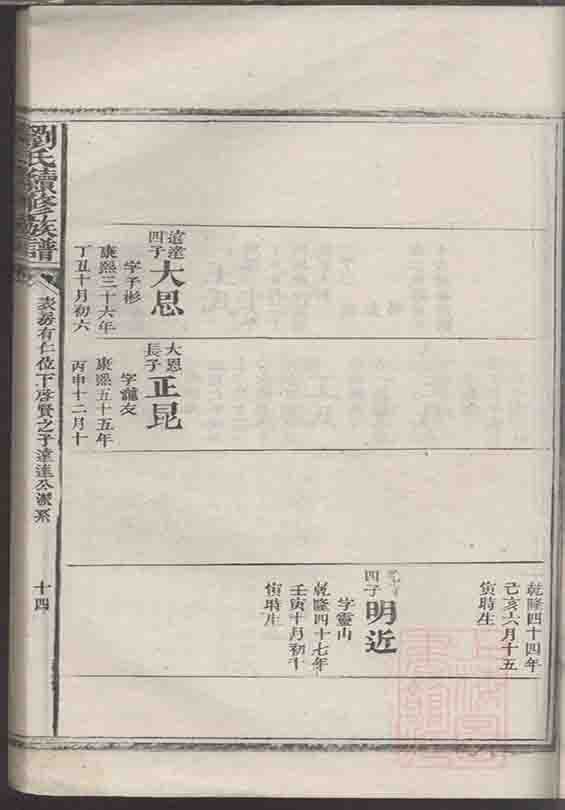 乾隆四十四年
己亥六月十五
寅時生
四子
明近
字靈山
乾隆四十七年
壬寅十月初十
寅時生
四子
大恩
字子彬
康熙三十六年
丁丑十月初六
大恩
長子
正昆
字龍友
康熙五十五年
丙申十二月十
劉氏續修族譜
表房有仁位下啓賢之子達達公派系
十四